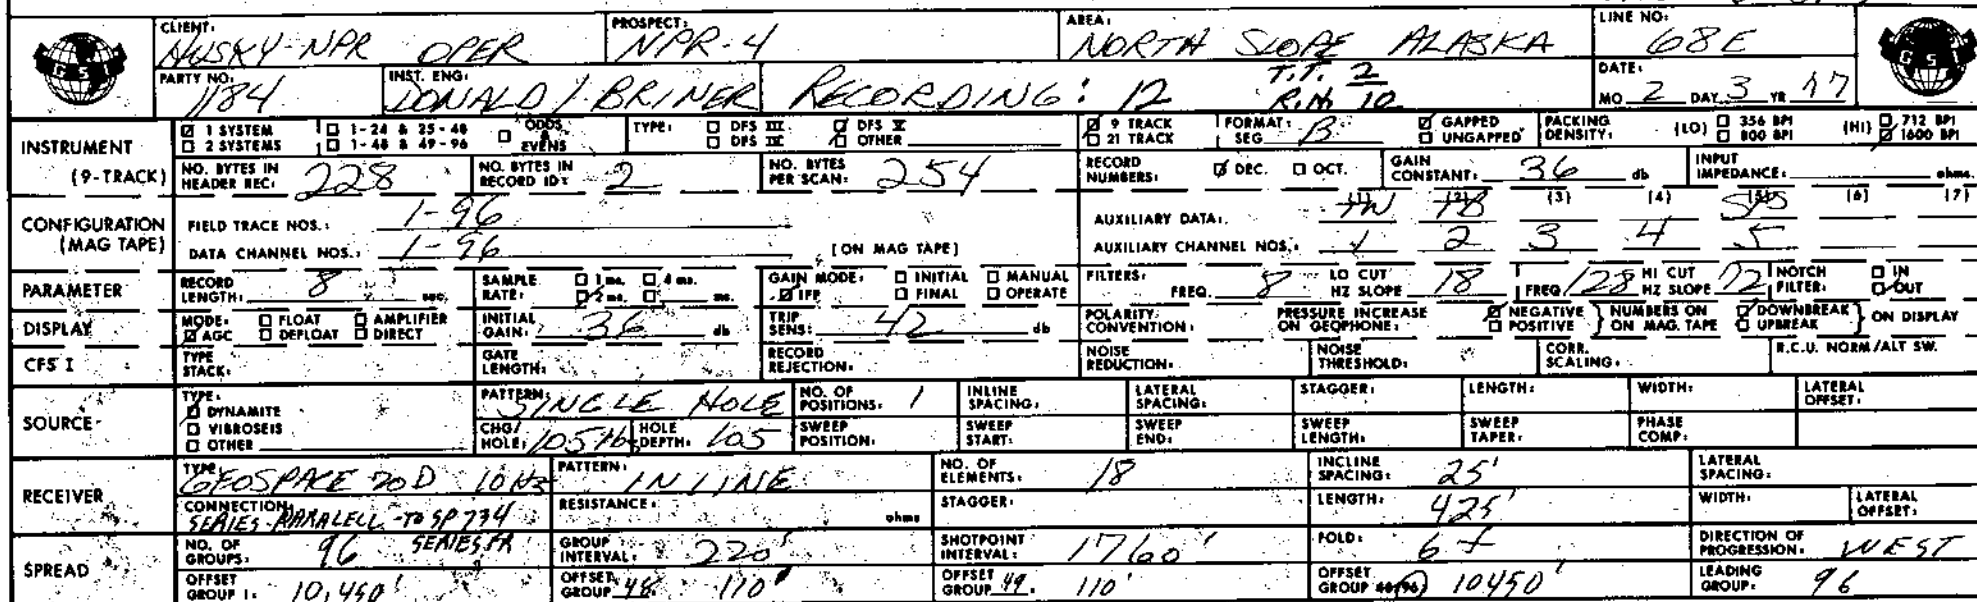 CLIENT: HUSKY-NPR OPER PROSPECT: NPR-4 AREA: NORTH SLOPE ALASKA LINE NO: 68E
GSI
PARTY NO: 1184 INST. ENG: DONALD BRINER RECORDING: 12 T.T. 2 R.N. 10 DATE: MO 2 DAY 3 YR 77
GSI
INSTRUMENT (9-TRACK)
1 SYSTEM 1-24 & 25-48 ODDS & EVENS TYPE: DFS III DFS V 9 TRACK FORMAT: SEG B GAPPED PACKING DENSITY: (LO) 356 BPI (HI) 712 BPI
2 SYSTEMS 1-48 & 49-96 DFS IV OTHER 21 TRACK UNGAPPED 800 BPI 1600 BPI
NO. BYTES IN HEADER REC: 228 NO. BYTES IN RECORD ID: 2 NO. BYTES PER SCAN: 254 RECORD NUMBERS: DEC. OCT. GAIN CONSTANT: 36 db INPUT IMPEDANCE: ohms.
CONFIGURATION (MAG TAPE)
FIELD TRACE NOS.: 1-96 AUXILIARY DATA: (1) (2) (3) (4) (5) (6) (7)
DATA CHANNEL NOS.: 1-96 [ON MAG TAPE] AUXILIARY CHANNEL NOS.: 1 2 3 4 5
PARAMETER RECORD LENGTH: 8 sec. SAMPLE RATE: 1 ms. 4 ms. 2 ms. ms. GAIN MODE: INITIAL MANUAL IFP FINAL OPERATE FILTERS: FREQ 8 LO CUT HZ SLOPE 18 FREQ 128 HI CUT HZ SLOPE 72 NOTCH FILTER: IN OUT
DISPLAY MODE: FLOAT AMPLIFIER AGC DEFLOAT DIRECT INITIAL GAIN: 36 db TRIP SENS: 42 db POLARITY CONVENTION: PRESSURE INCREASE ON GEOPHONE: NEGATIVE POSITIVE } NUMBERS ON MAG. TAPE DOWNBREAK UPBREAK } ON DISPLAY
CFS I TYPE STACK: GATE LENGTH: RECORD REJECTION: NOISE REDUCTION: NOISE THRESHOLD: CORR. SCALING: R.C.U. NORM/ALT SW.
SOURCE TYPE: DYNAMITE VIBROSEIS OTHER
PATTERN: SINGLE HOLE NO. OF POSITIONS: 1 INLINE SPACING: LATERAL SPACING: STAGGER: LENGTH: WIDTH: LATERAL OFFSET:
CHG/HOLE: 105 lb HOLE DEPTH: 105 SWEEP POSITION: SWEEP START: SWEEP END: SWEEP LENGTH: SWEEP TAPER: PHASE COMP:
RECEIVER TYPE GEOSPACE 20D 10 Hz PATTERN: INLINE NO. OF ELEMENTS: 18 INCLINE SPACING: 25' LATERAL SPACING:
CONNECTION: SERIES-PARALELL-TO SP 734 RESISTANCE: ohms STAGGER: LENGTH: 425' WIDTH: LATERAL OFFSET:
SPREAD NO. OF GROUPS: 96 GROUP INTERVAL: 220' SHOTPOINT INTERVAL: 1760' FOLD: 6 DIRECTION OF PROGRESSION: WEST
OFFSET GROUP 1: 10,450' OFFSET GROUP 48: 110' OFFSET GROUP 49: 110' OFFSET GROUP 10450' LEADING GROUP: 96